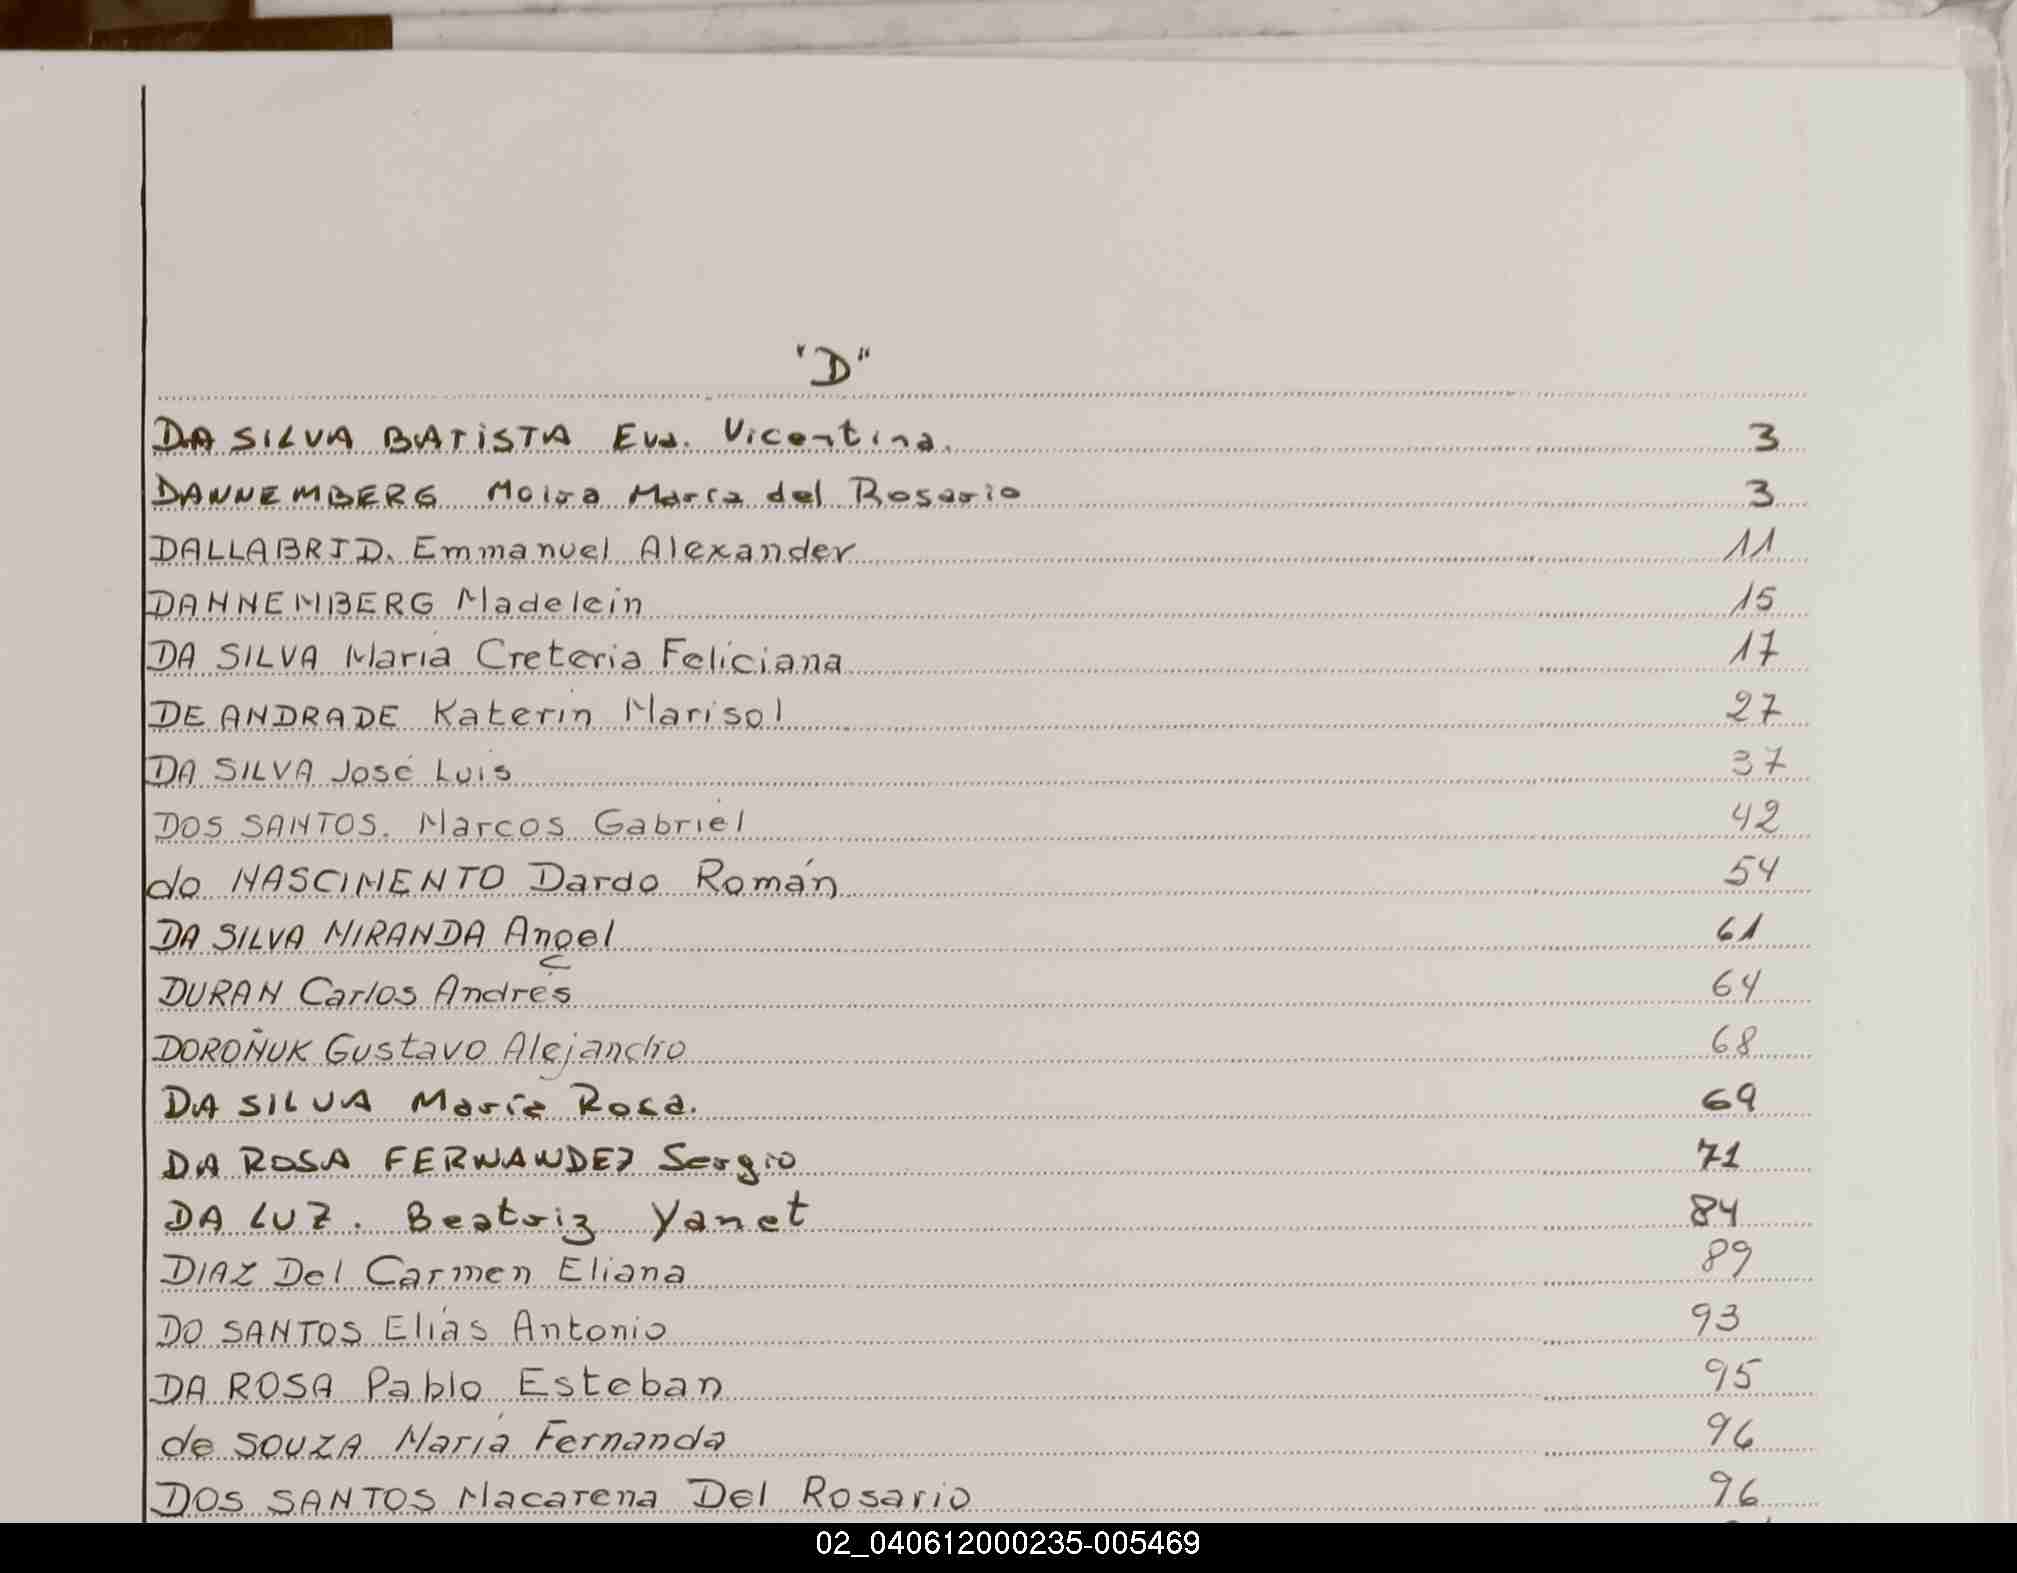 "D"
DA SILVA BATISTA Eva. Vicentina. 3
DANNEMBERG Moira María del Rosario 3
DALLABRID. Emmanuel Alexander 11
DANNEMBERG Madelein 15
DA SILVA María Creteria Feliciana 17
DE ANDRADE Katerin Marisol 27
DA SILVA José Luis 37
DOS SANTOS. Marcos Gabriel 42
do NASCIMENTO Dardo Román 54
DA SILVA MIRANDA Angel 61
DURAN Carlos Andrés 64
DOROÑUK Gustavo Alejandro 68
DA SILVA María Rosa. 69
DA ROSA FERNANDEZ Sergio 71
DA LUZ. Beatriz Yanet 84
DIAZ Del Carmen Eliana 89
DO SANTOS Elías Antonio 93
DA ROSA Pablo Esteban 95
de SOUZA María Fernanda 96
DOS SANTOS Macarena Del Rosario 96
02_040612000235-005469